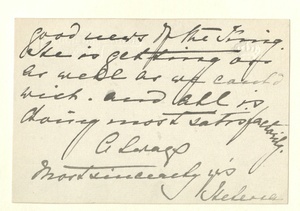 good news of the King.
He is getting on
as well as we could
wish. and all is
doing most satisfactorily.
Always
Most sincerely yrs
Helena